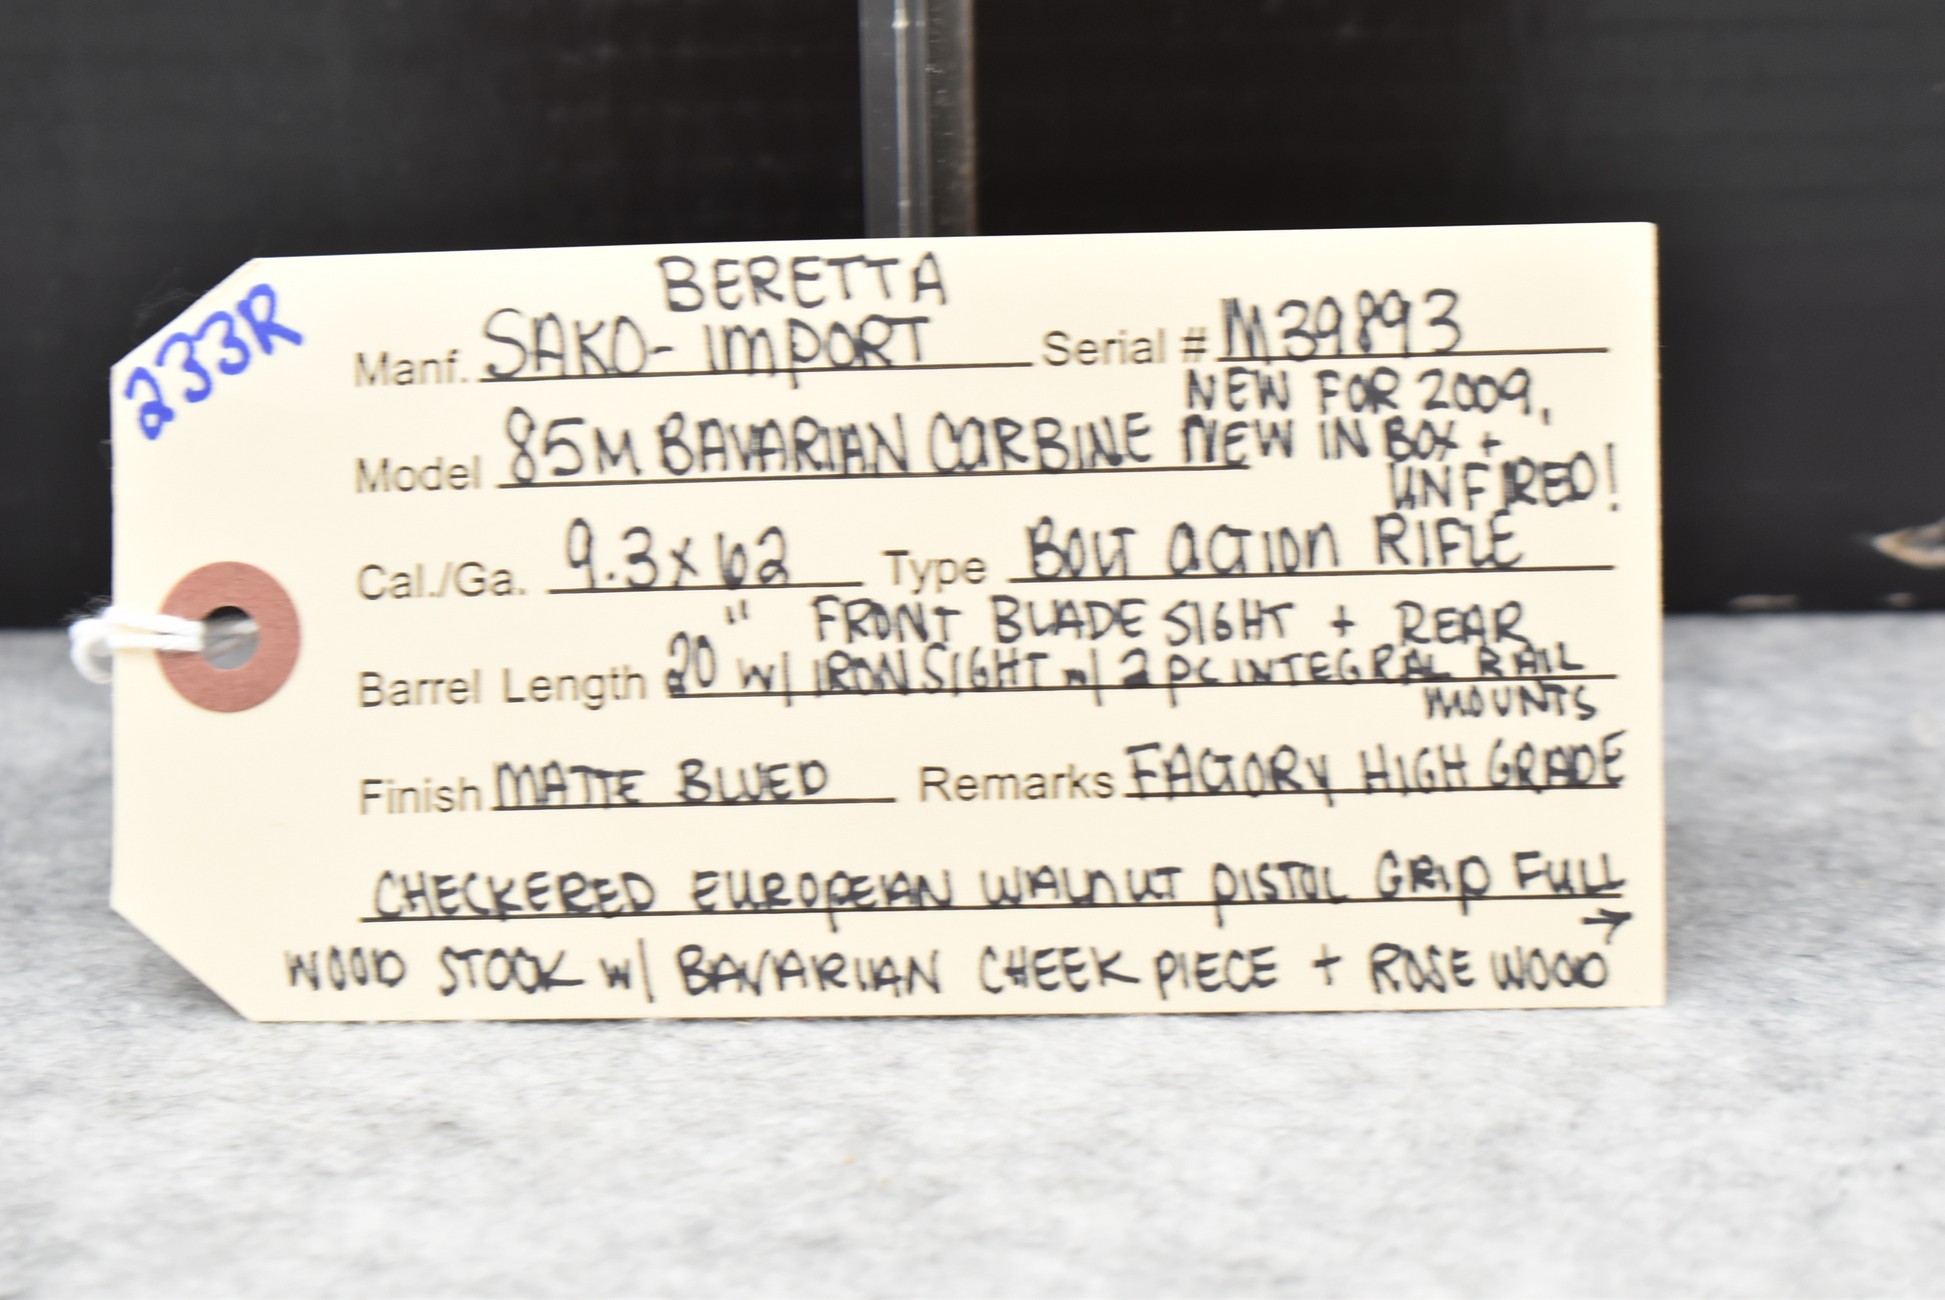 233R
BERETTA
Manf. SAKO- IMPORT Serial # M39893
NEW FOR 2009,
Model 85M BAVARIAN CARBINE NEW IN BOX +
UNFIRED!
Cal./Ga. 9.3x62 Type BOLT ACTION RIFLE
FRONT BLADE SIGHT + REAR
Barrel Length 20" w/ IRON SIGHT w/ 2 PC INTEGRAL RAIL
MOUNTS
Finish MATTE BLUED Remarks FACTORY HIGH GRADE
CHECKERED EUROPEAN WALNUT PISTOL GRIP FULL
WOOD STOCK w/ BAVARIAN CHEEK PIECE + ROSE WOOD →